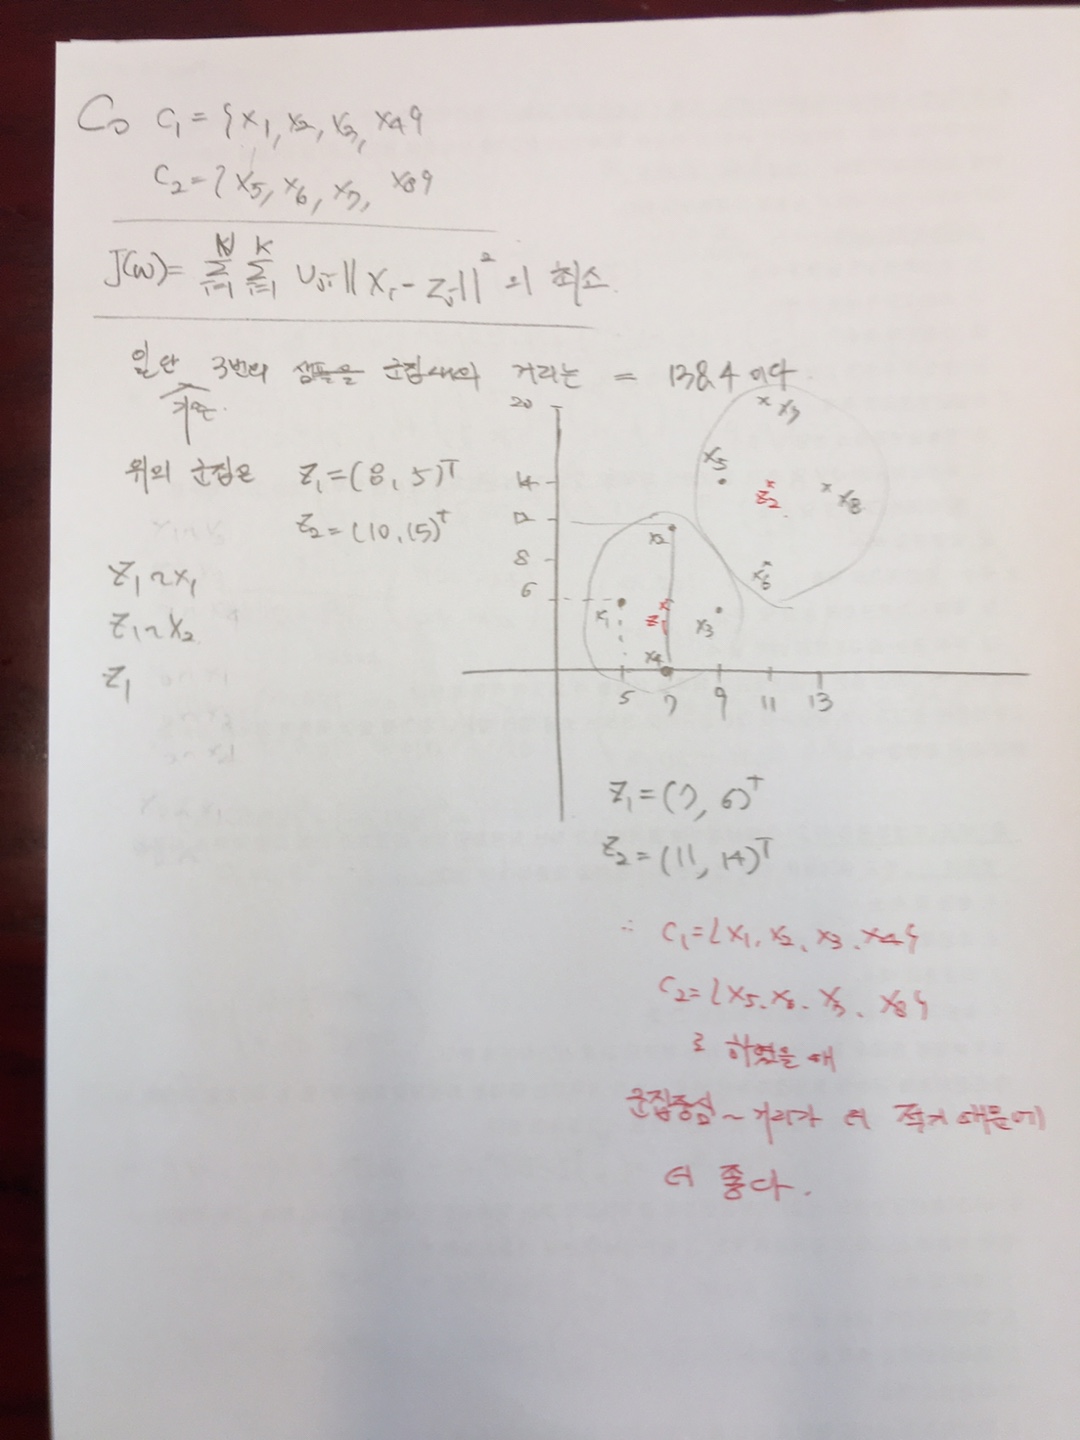 C₀ C₁ = {x₁, x₂, x₃, x₄}
C₂ = {x₅, x₆, x₇, x₈}
J(w) = Σ Σ ‖xᵢ - zⱼ‖² 의 최소
i=1 i=1
일단 3번의 샘플을 군집내의 거리는 = 1384 이다.
위의 군집은 Z₁ = (8, 5)ᵀ
Z₂ = (10, 15)ᵀ
Z₁ ~ x₁
Z₁ ~ x₂
Z₁
20
x₇
x₅
14
z₂
x₈
12
x₂
8
x₆
6
x₁
z₁
x₃
x₄
5 7 9 11 13
Z₁ = (7, 6)ᵀ
Z₂ = (11, 14)ᵀ
∴ C₁ = {x₁, x₂, x₃, x₄}
C₂ = {x₅, x₆, x₇, x₈}
로 하였을 때
군집중심 ~ 거리가 더 적기 때문에
더 좋다.